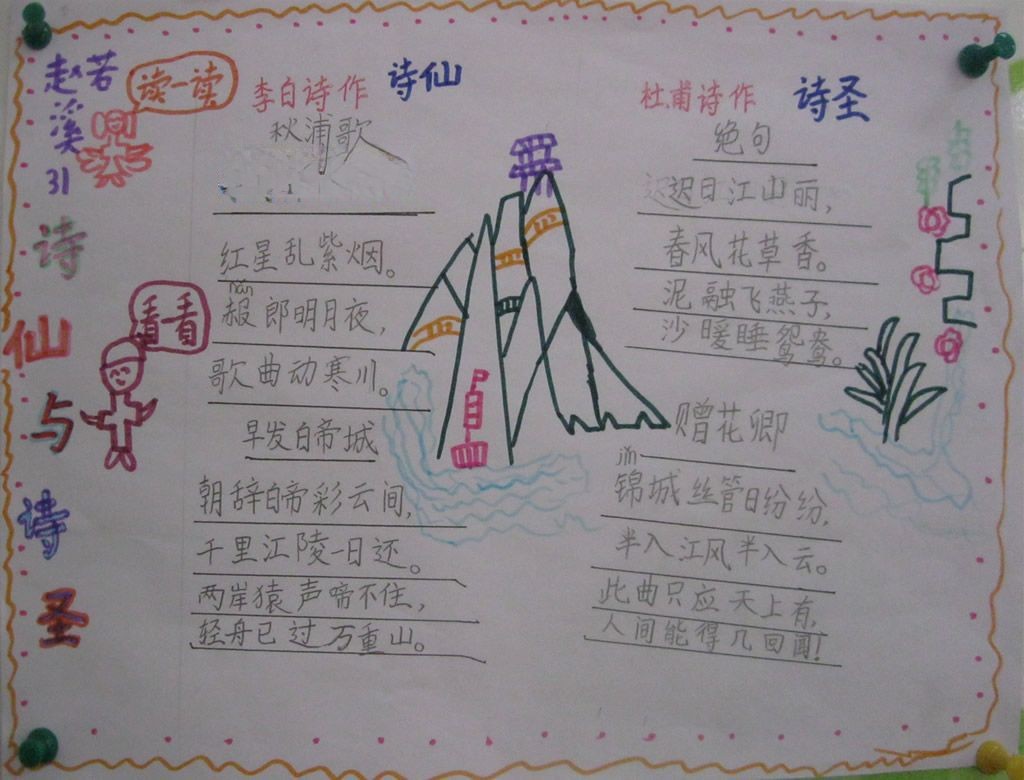 赵若溪
31
读一读
诗仙与诗圣
看一看
李白诗作 诗仙
秋浦歌
红星乱紫烟。
nǎn
赧郎明月夜，
歌曲动寒川。
早发白帝城
朝辞白帝彩云间，
千里江陵一日还。
两岸猿声啼不住，
轻舟已过万重山。
杜甫诗作 诗圣
绝句
迟迟日江山丽，
春风花草香。
泥融飞燕子，
沙暖睡鸳鸯。
赠花卿
jǐn
锦城丝管日纷纷，
半入江风半入云。
此曲只应天上有，
人间能得几回闻！